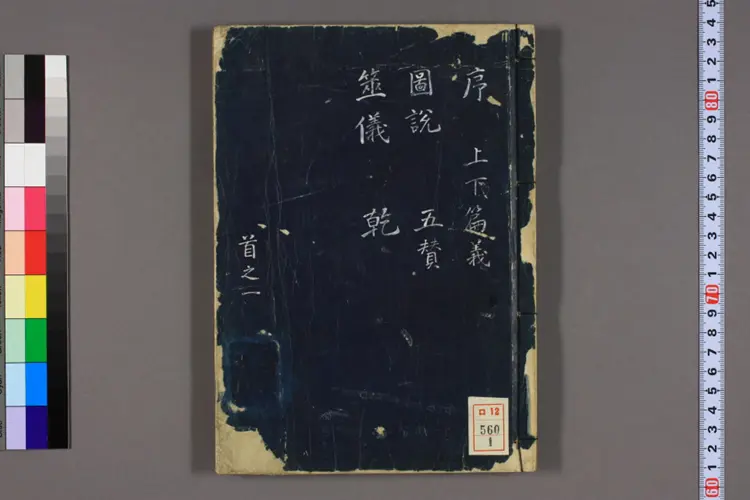 序 上下篇義
圖說 五賛
筮儀 乾
首之一
ロ 12
560
1
5
4
3
2
1
80
9
8
7
6
5
4
3
2
1
70
9
8
7
6
5
4
3
2
1
60